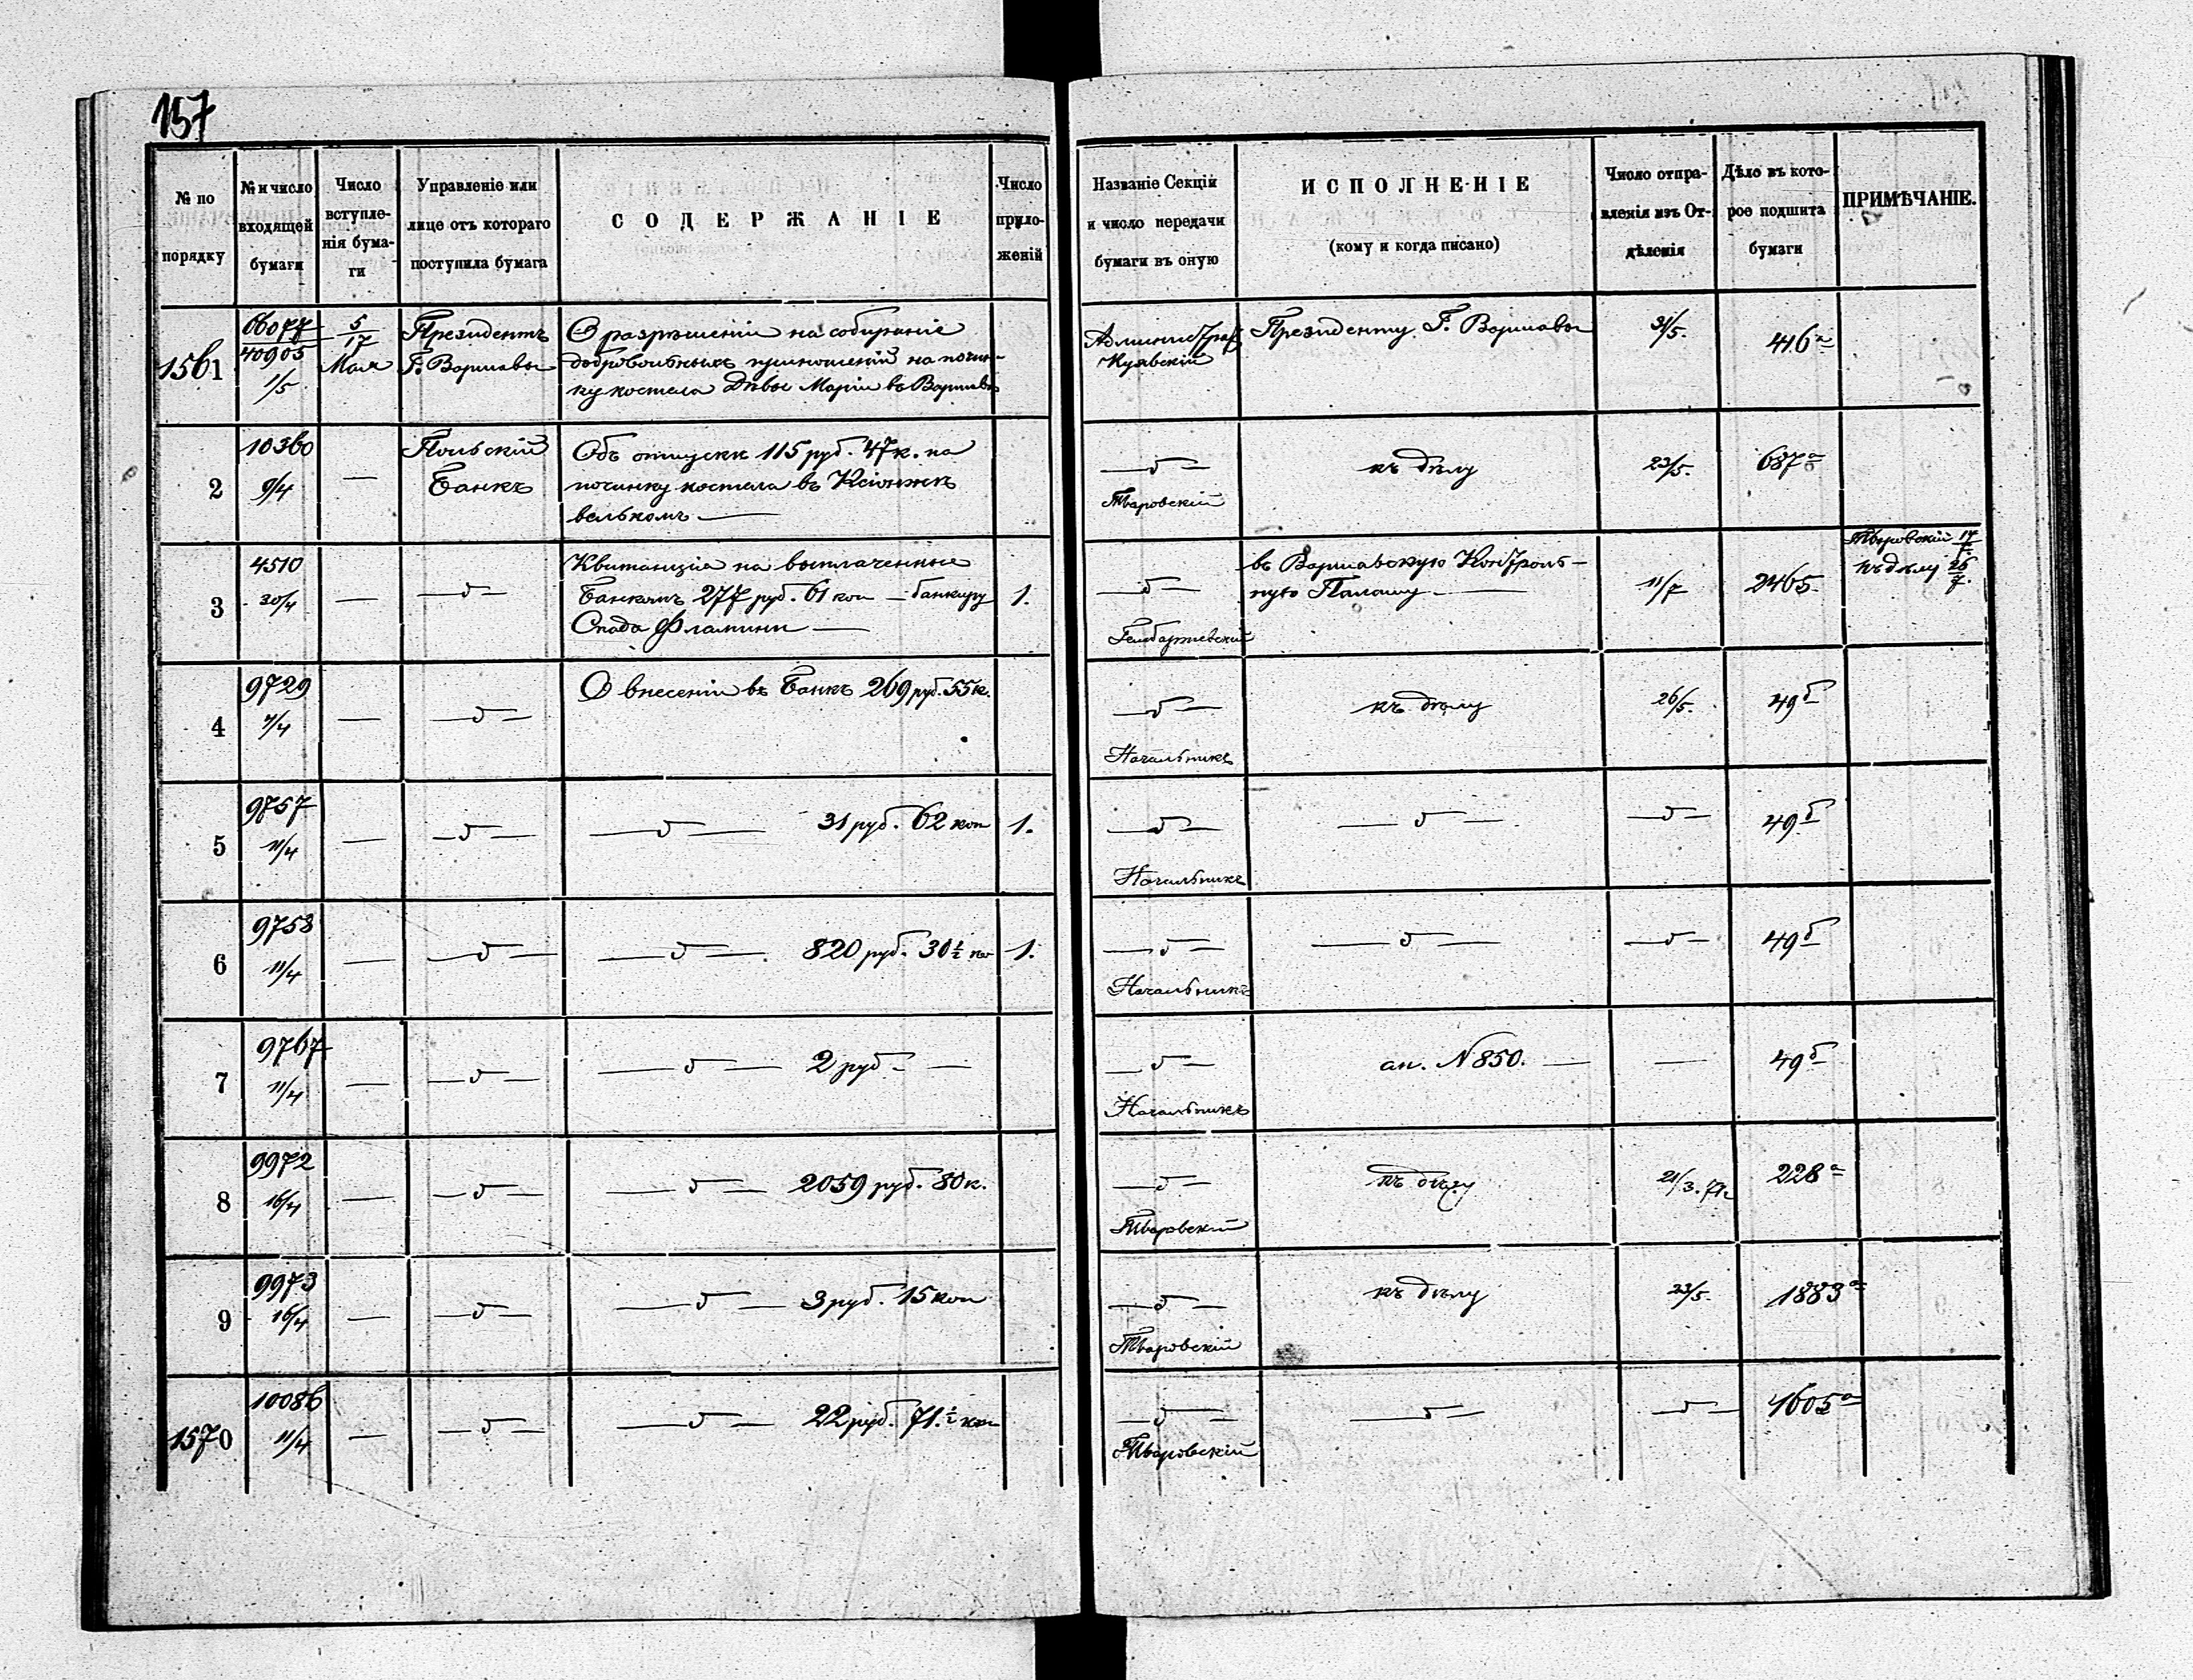 157
№ по порядку
№ и число входящей бумаги
Число вступле-нія бума-ги
Управленіе или лице отъ котораго поступила бумага
СОДЕРЖАНІЕ
Число прило-женій
Названіе Секціи и число передачи бумаги въ оную
ИСПОЛНЕНІЕ
(кому и когда писано)
Число отпра-вленія изъ От-дѣленія
Дѣло въ кото-рое подшита бумаги
ПРИМѢЧАНІЕ.
1561
66077
40905
1/5
5/17
Мая
Президентъ
Г. Варшавы
О разрѣшеніи на собираніе
добровольныхъ приношеній на почин-
ку костела Дѣвы Маріи въ Варшавѣ
Президенту Г. Варшавы
31/5.
416а
2
10360
9/4
—
Польскій
Банкъ
Объ отпускѣ 115 руб. 47 к. на
починку костела въ Ксіонжѣ
велькомъ —
— „ —
Тваровскій
къ дѣлу
23/5.
687а
3
4510
30/4
—
— „ —
Квитанція на выплаченные
Банкомъ 277 руб. 61 коп — банкиру
Спада Фламини —
1.
— „ —
въ Варшавскую Контроль-
ную Палату —
11/7
2465.
Тваровскій
къ дѣлу
4
9729
—
— „ —
О внесеніи въ Банкъ 269 руб. 55 к.
— „ —
Начальникъ
къ дѣлу
26/5.
49б
5
9757
11/4
—
— „ —
— „ — 31 руб. 62 коп
1.
— „ —
Начальникъ
— „ —
— „ —
49б
6
9758
11/4
—
— „ —
— „ — 820 руб. 30½ ко
1.
— „ —
Начальникъ
— „ —
— „ —
49б
7
9767
11/4
—
— „ —
— „ — 2 руб. —
— „ —
Начальникъ
ап. № 850. —
—
49б
8
9972
16/4
—
— „ —
— „ — 2059 руб. 80 к.
— „ —
Тваровскій
къ дѣлу
21/3. 71г
228а
9
9973
16/4
—
— „ —
— „ — 3 руб. 15 коп
— „ —
Тваровскій
къ дѣлу
23/5.
1883а
1570
10086
11/4
—
— „ —
— „ — 22 руб. 71.½ коп
— „ —
Тваровскій
— „ —
— „ —
1605а